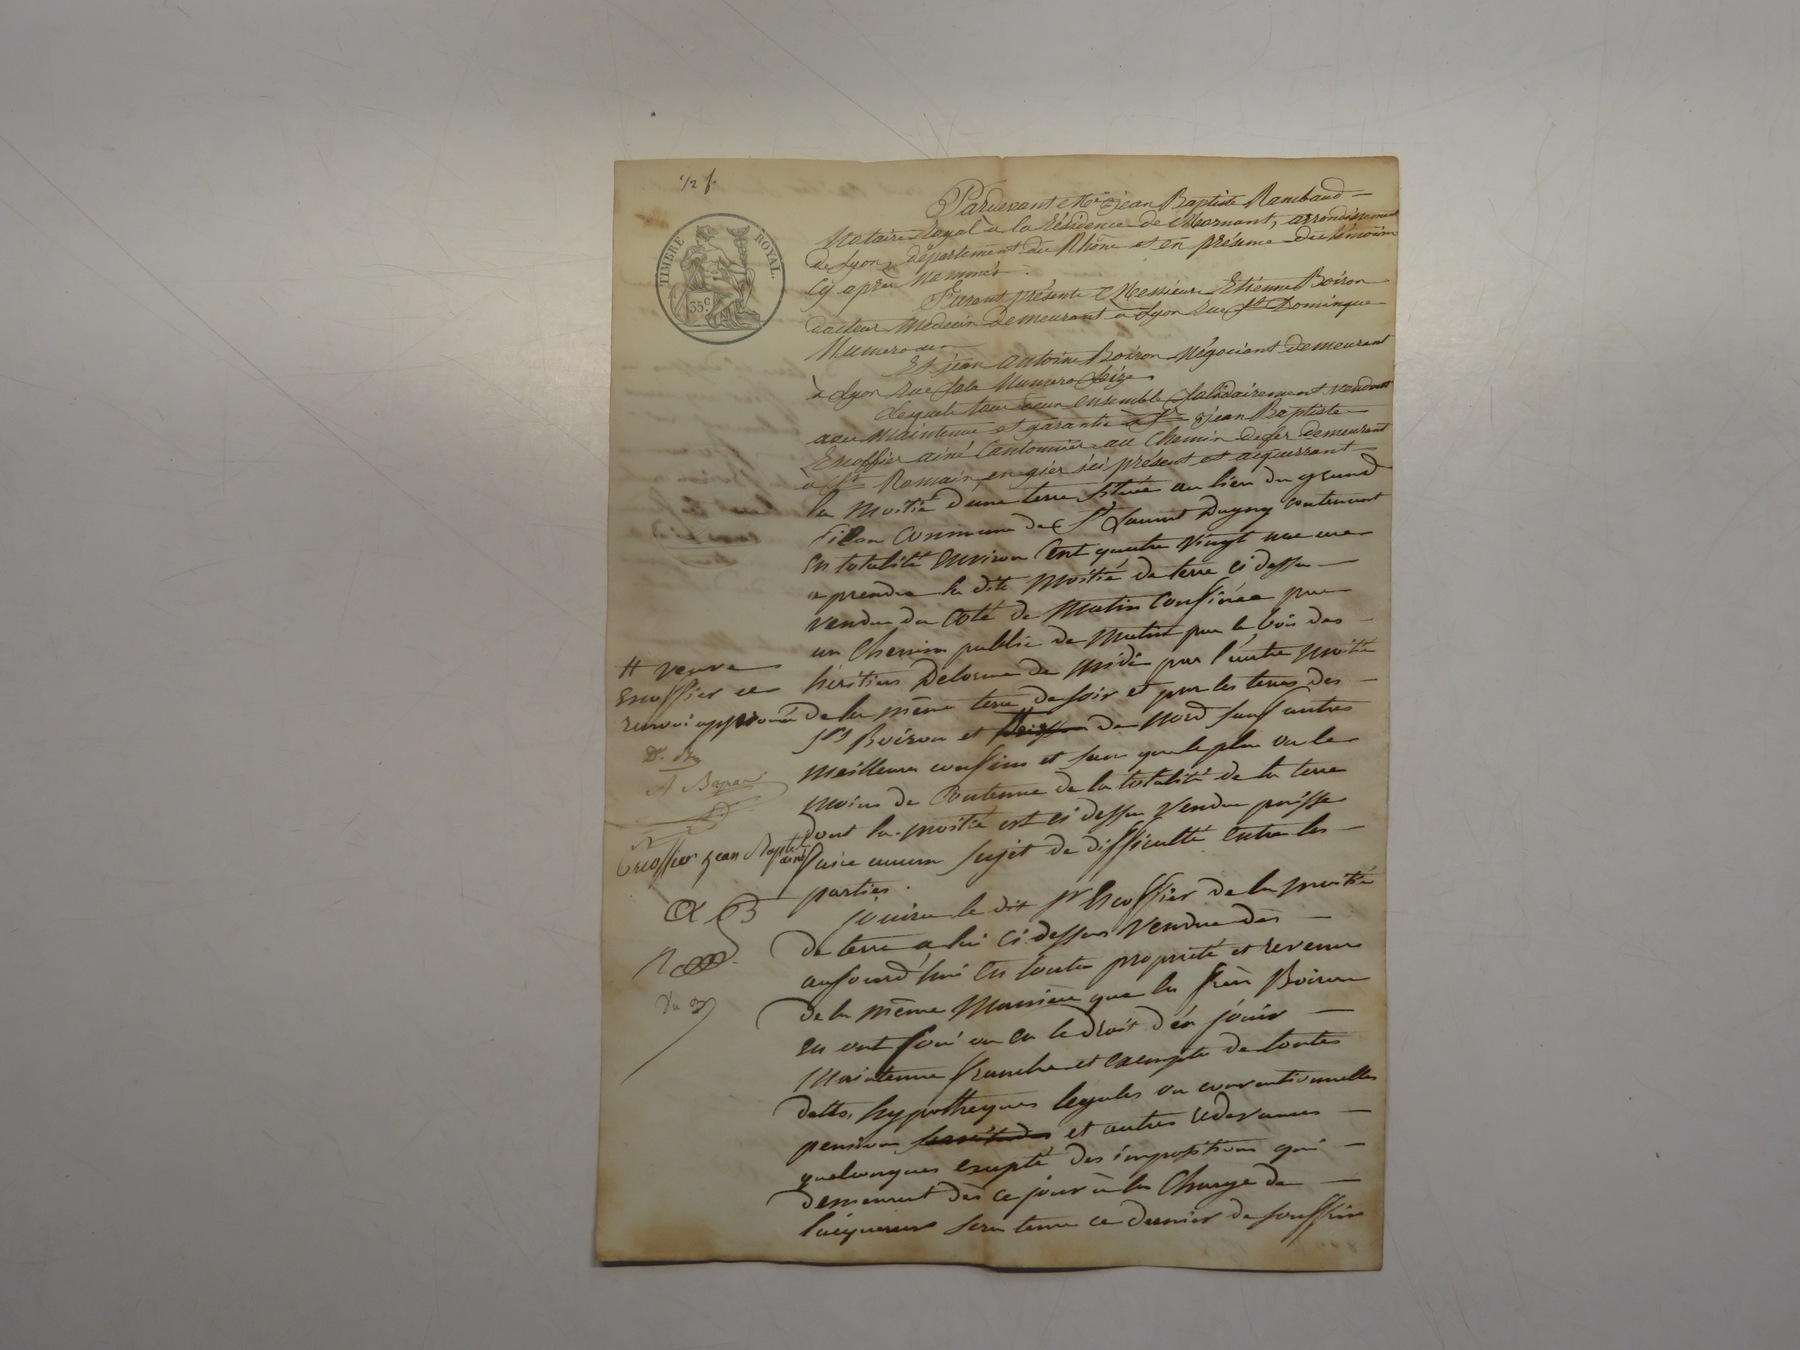 1/2 f.
TIMBRE ROYAL
35 c
Pardevant Me jean Baptiste Rambaud
Notaire Royal à la résidence de Mornant, arrondissement
de Lyon, département du Rhône et en présence des témoins
cy après Nommés
Furent présents Messieurs Etienne Boiron
docteur Médecin Demeurant à Lyon rue St Dominique
Numero
Et jean antoine Boiron Négociant demeurant
à Lyon rue Sala Numero seize
lesquels tous deux ensemble solidairement vendent
avec Maintenue et garantie à Sr jean Baptiste
Escoffier ainé Cantonnier au Chemin de fer demeurant
à St Romain en gier ici présent et acquerrant
la moitié d'une terre située au lieu du grand
Commune de St Laurent Dagny contenant
en totalité environ Cent quatre vingt
a prendre la dite moitié de terre ci dessus
vendue du Coté de Matin Confinée par
un Chemin public de Matin par le bois des
héritiers Delorme de Midi par l'autre moitié
de la même terre de soir et par les terres des
Srs Boiron et # de Nord sauf autres
meilleurs confins et sans que le plus ou le
moins de Contenue de la totalité de la terre
dont la moitié est ci dessus vendue puisse
faire aucun sujet de difficulté entre les
parties.
# veuve
Escoffier
renvoi approuvé
Escoffier jean Baptiste
ainé
B
jouira le dit Sr Escoffier de la moitié
de terre a lui ci dessus vendue dès
aujourd'hui en toute propriété et revenus
de la même Manière que les frères Boiron
en ont joui ou eu le droit d'en jouir
Maintenue franche et exempte de toutes
dettes, hypotheques legales ou conventionnelles
pensions servitudes et autres redevances
quelconques excepté des impositions qui
demeurent dès ce jour à la Charge de
l'acquereur sera tenu ce dernier de souffrir